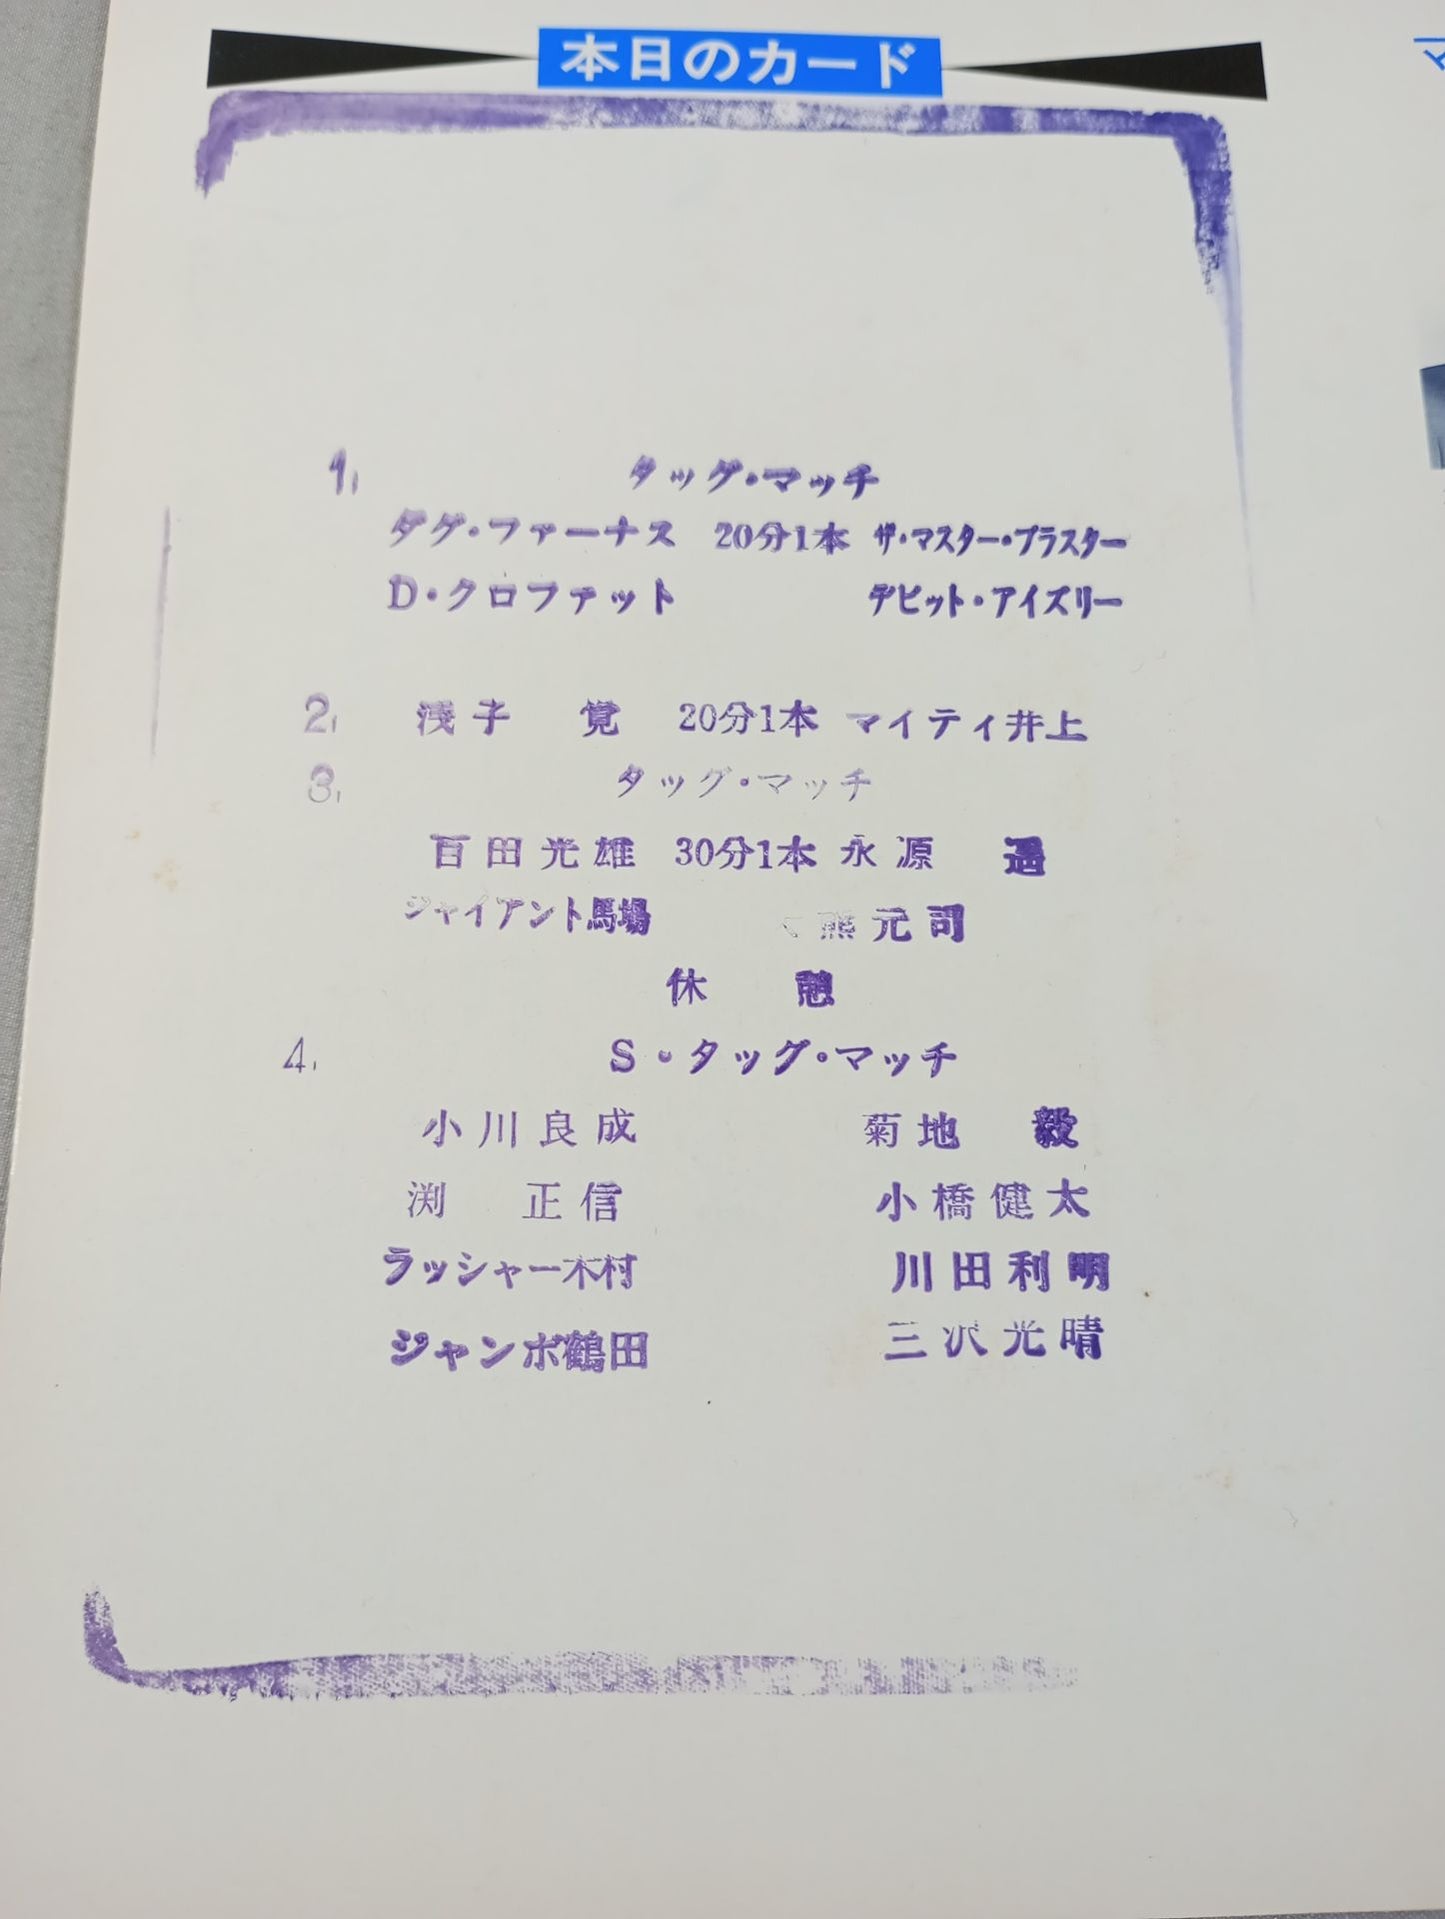 本日のカード
マ
1, タッグ・マッチ
ダグ・ファーナス 20分1本 ザ・マスター・ブラスター
D・クロファット デビット・アイズリー
2, 浅子 覚 20分1本 マイティ井上
3, タッグ・マッチ
百田光雄 30分1本 永源 遥
ジャイアント馬場 熊元司
休 憩
4, S・タッグ・マッチ
小川良成 菊地 毅
渕 正信 小橋健太
ラッシャー木村 川田利明
ジャンボ鶴田 三沢光晴